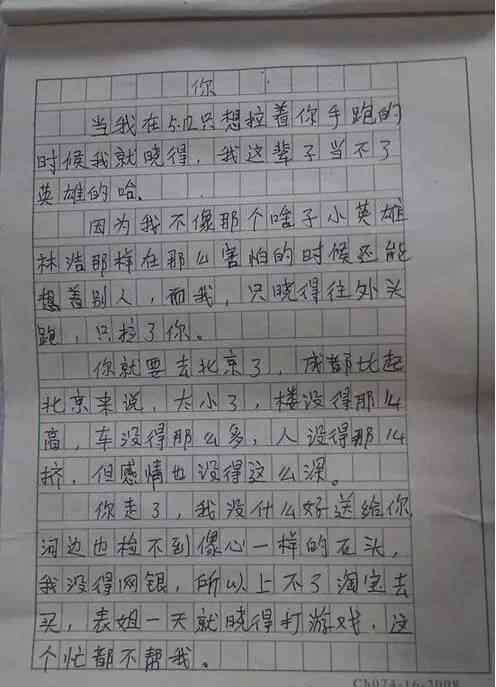 你
当我在5.12只想拉着你手跑的
时候我就晓得，我这辈子当不了
英雄的哈。
因为我不像那个啥子小英雄
林浩那样在那么害怕的时候还能
想着别人，而我，只晓得往外头
跑，只拉了你。
你就要去北京了，成都比起
北京来说，太小了，楼没得那么
高，车没得那么多，人没得那么
挤，但感情也没得这么深。
你走了，我没什么好送给你
河边也捡不到像心一样的石头，
我没得网银，所以上不了淘宝去
买，表姐一天就晓得打游戏，这
个忙都不帮我。
Ch024-16-2008